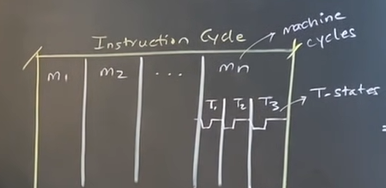 Instruction Cycle
machine
cycles
m1 m2 ... mn
T1 T2 T3
T-states